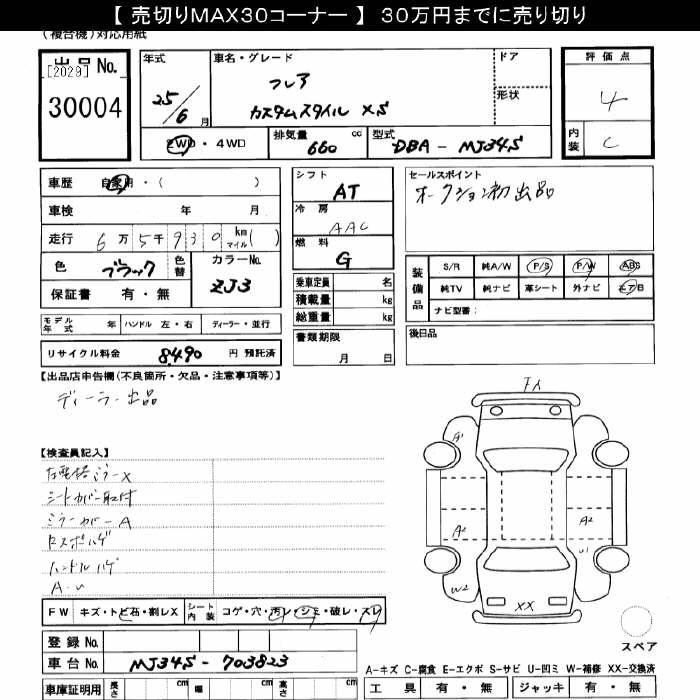 【 売切りMAX30コーナー 】 30万円までに売り切り
(複合機)対応用紙
出品 No.
[2029]
30004
年式
25/6 月
車名・グレード
フレア
カスタムスタイル XS
ドア
形状
2WD・4WD
排気量 cc
660
型式
DBA - MJ34S
評価点
4
内装
C
車歴 自家用・( )
車検 年 月
走行 6万5千930 km マイル( )
色 ブラック 色替
カラーNo.
ZJ3
保証書 有・無
モデル年式 年 ハンドル 左・右 ディーラー・並行
リサイクル料金 8490 円 預託済
シフト
AT
冷房
AAC
燃料
G
乗車定員 名
積載量 kg
総重量 kg
書類期限
月 日
セールスポイント
オークション初出品
装備品
S/R 純A/W P/S P/W ABS
純TV 純ナビ 革シート 外ナビ エアB
ナビ型番:
後日品
【出品店申告欄(不良箇所・欠品・注意事項等)】
ディーラー出品
【検査員記入】
ミラーX
シートカバー取付
ミラーカバーA
ハンドルハゲ
A・U
FW キズ・トビ石・割レX シート内装 コゲ・穴・汚レ・シミ・破レ・スレ
登録 No.
車台 No. MJ34S - 703823
車庫証明用 長さ cm 幅 cm 高さ cm
A1
A2
W2
A2
U1
XX
スペア
A-キズ C-腐食 E-エクボ S-サビ U-凹ミ W-補修 XX-交換済
工具 有・無 ジャッキ 有・無